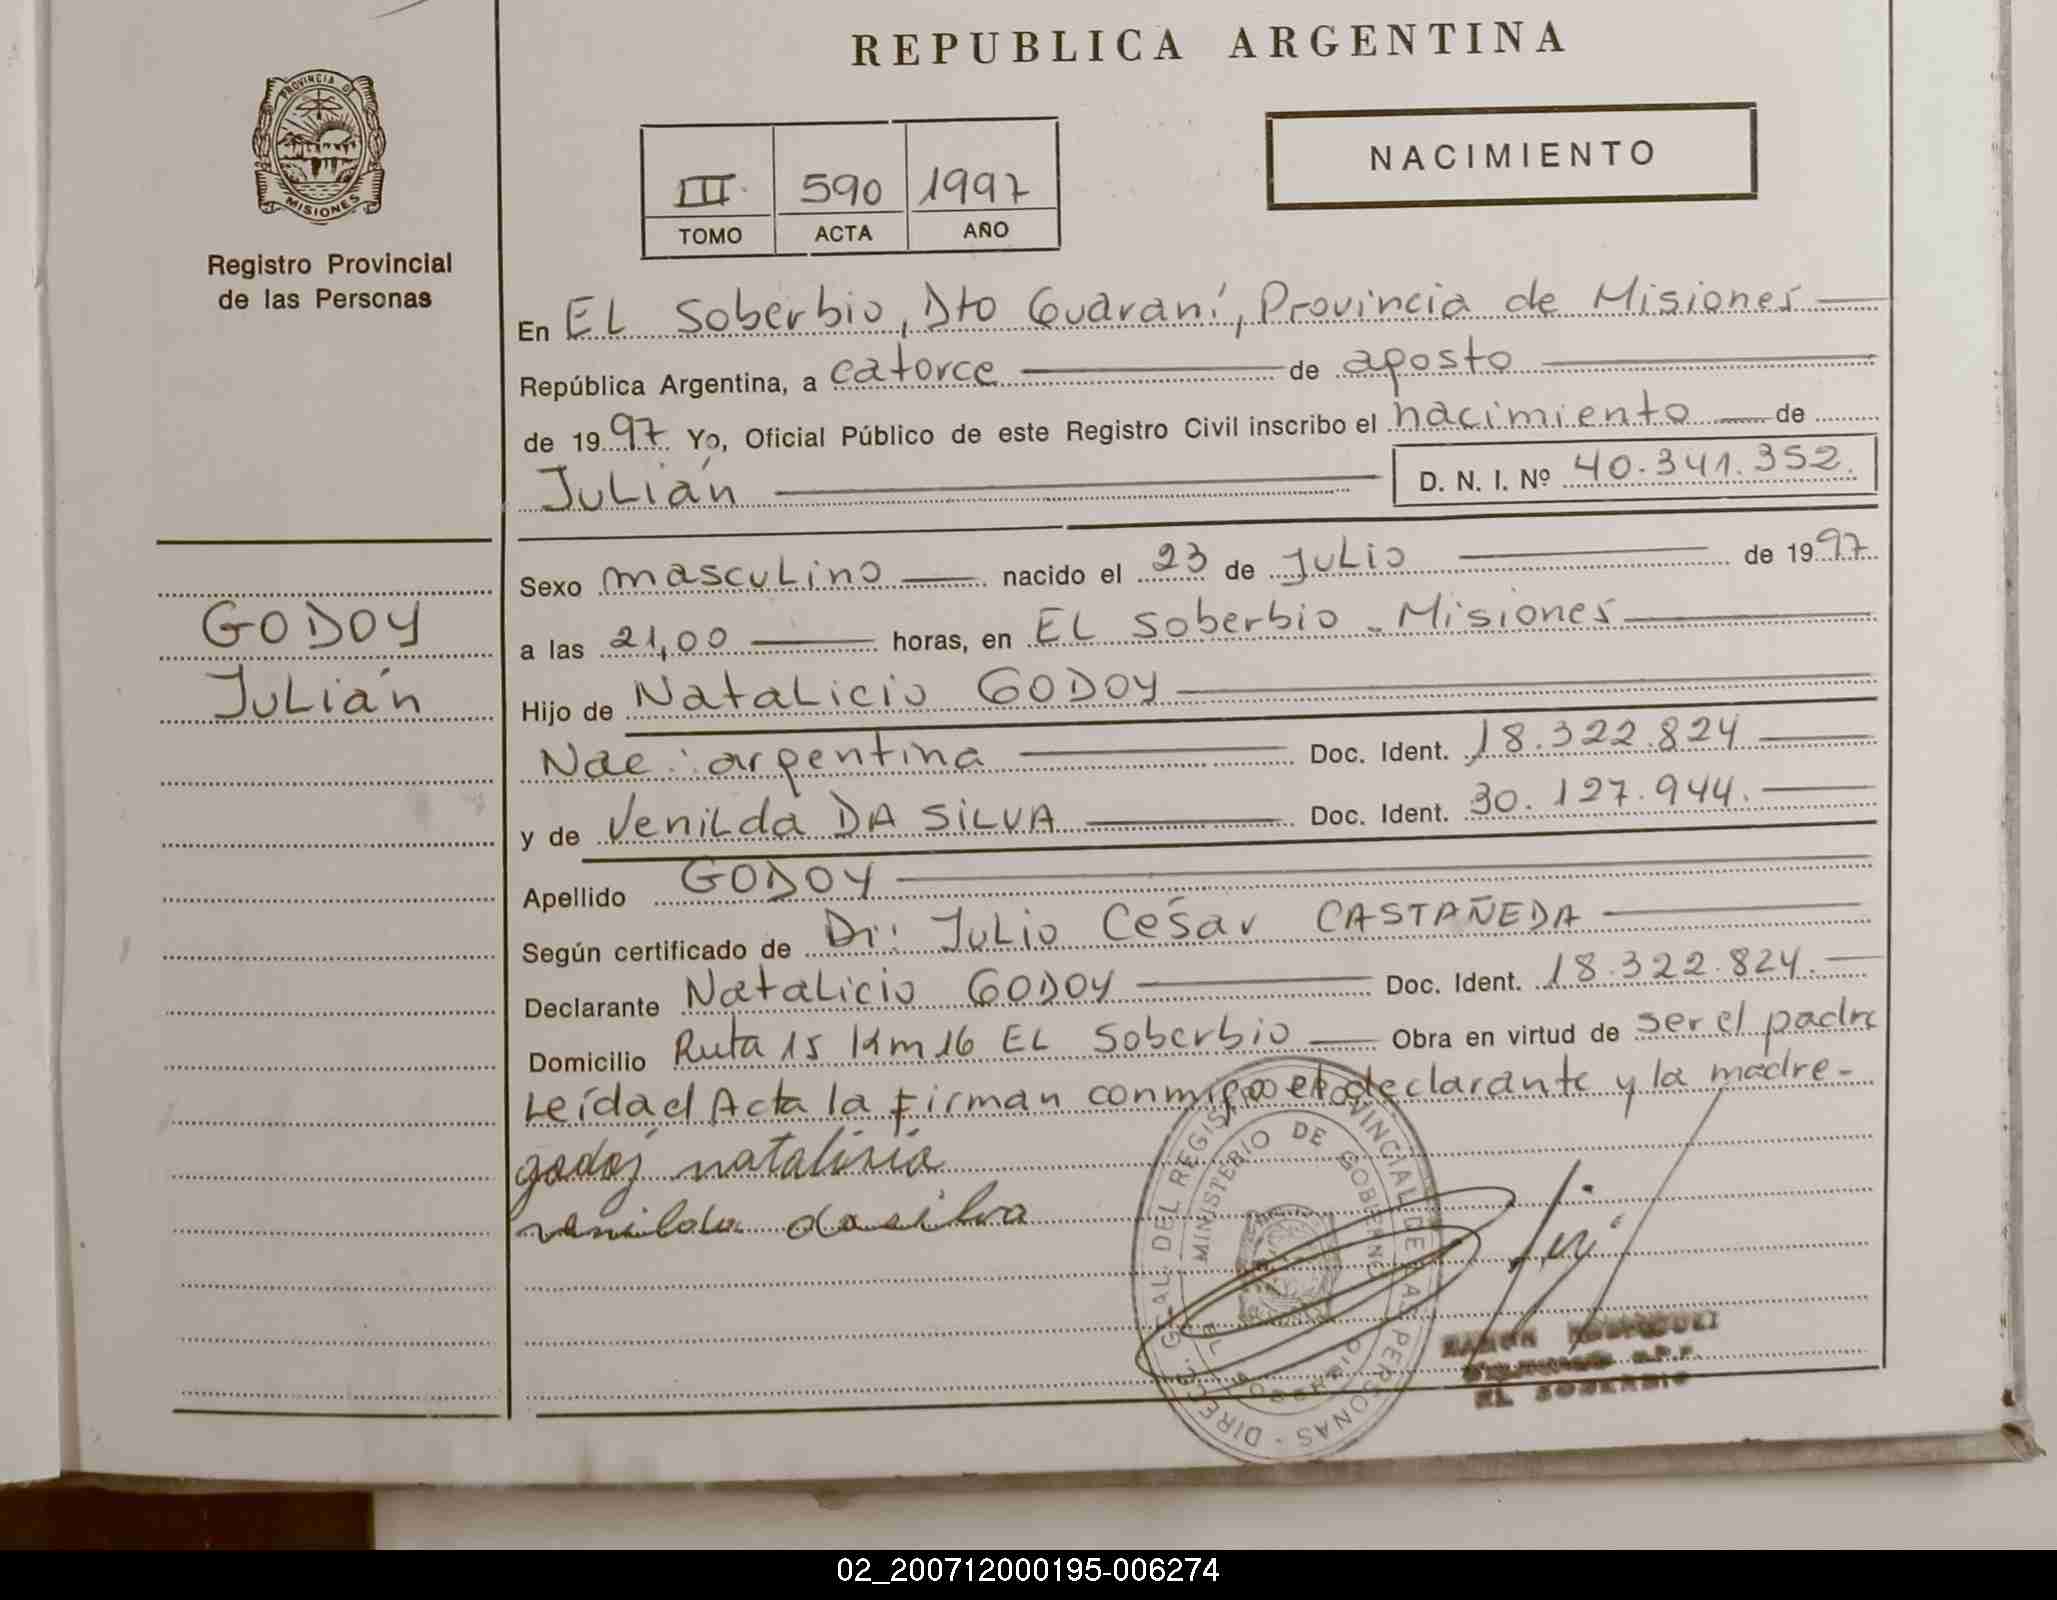 REPUBLICA ARGENTINA
PROVINCIA DE
MISIONES
Registro Provincial
de las Personas
III 590 1997
TOMO ACTA AÑO
NACIMIENTO
En EL Soberbio, Dto Guaraní, Provincia de Misiones
República Argentina, a catorce de agosto
de 1997 Yo, Oficial Público de este Registro Civil inscribo el nacimiento de
Julián D. N. I. Nº 40.341.352.
Sexo masculino nacido el 23 de Julio de 1997
a las 21,00 horas, en EL Soberbio - Misiones
Hijo de Natalicio GODOY
Nac: argentina Doc. Ident. 18.322.824
y de Venilda DA SILVA Doc. Ident. 30.127.944.
Apellido GODOY
Según certificado de Dr: Julio César CASTAÑEDA
Declarante Natalicio GODOY Doc. Ident. 18.322.824.
Domicilio Ruta 15 Km 16 EL Soberbio Obra en virtud de ser el padre
Leída el Acta la Firman conmigo el declarante y la madre-
godoj natalisio
venilda da silva
GODOY
Julián
DIREC. GRAL DEL REGISTRO PROVINCIAL DE LAS PERSONAS -
MINISTERIO DE GOBIERNO
EL SOBERBIO
RAMON
EL SOBERBIO
02_200712000195-006274